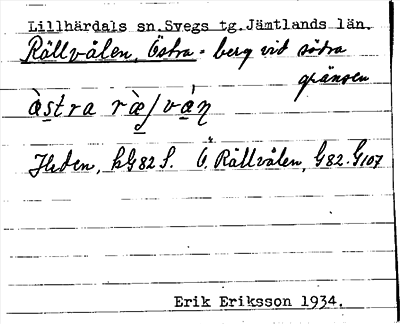 Lillhärdals sn. Svegs tg. Jämtlands län.
Rällvålen, Östra - berg vid södra
gränsen
Heden, hG82S. Ö. Rällvålen, G82. G107
Erik Eriksson 1934.